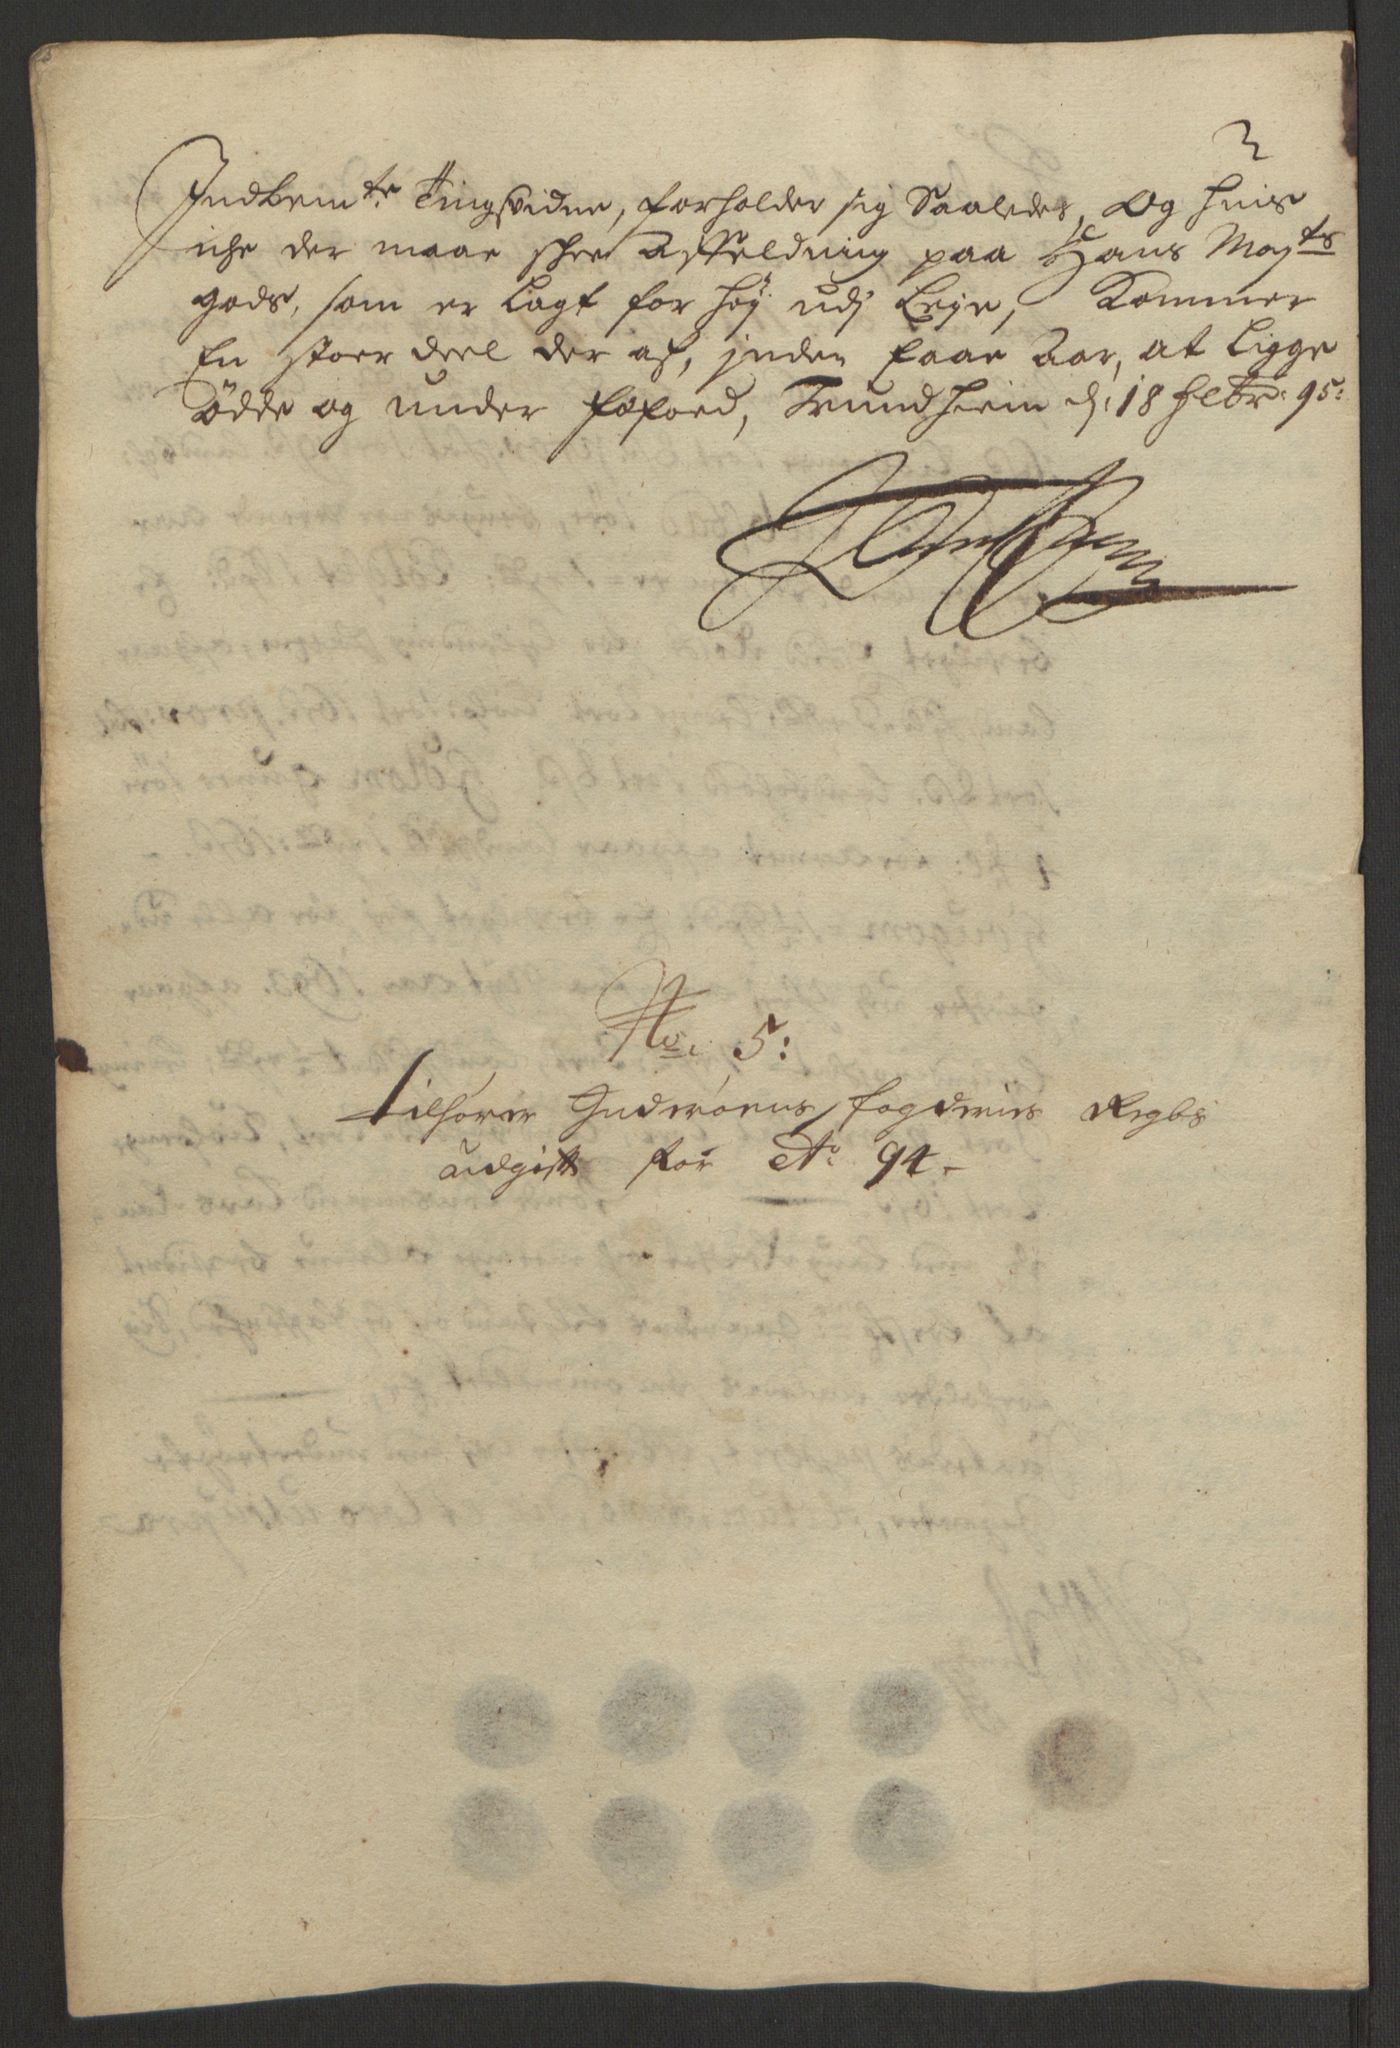 3
Indbem.te Tingsvidne, forholder sig Saaledes, Og huis
iche der maae skee Affeldning paa Hans May.ts
gods, som er Lagt for høy udj Leye, Kommer
En stoer deel der af, inden faae Aar, at Ligge
Ødde og under fæfoed, Trundhiem d: 18 Febr: 95:
No: 5:
Tilhörer Inderöens fogderies Regbs
udgift for Ao: 94.